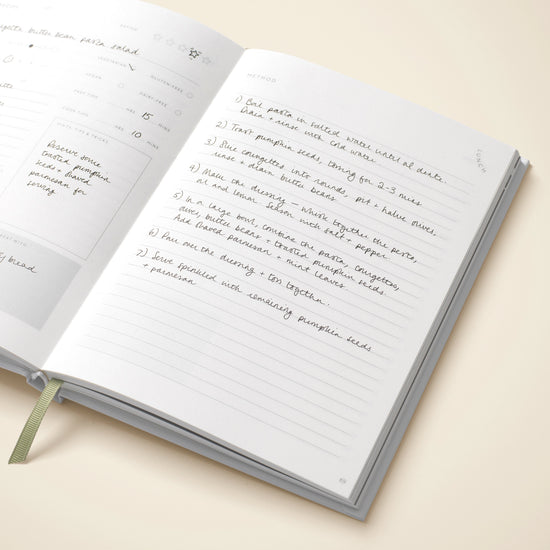 RATING
courgette butter bean pasta salad
VEGETARIAN
VEGAN
GLUTEN-FREE
DAIRY-FREE
PREP TIME HRS 15 MINS
COOK TIME HRS 10 MINS
HINTS, TIPS & TRICKS
Reserve some
toasted pumpkin
seeds + shaved
parmesan for
serving
bread
METHOD
LUNCH
1) Boil pasta in salted water until al dente.
Drain + rinse with cold water.
2) Toast pumpkin seeds, tossing for 2-3 mins
3) Slice courgettes into rounds, pit + halve olives,
rinse + drain butter beans.
4) Make the dressing – whisk together the pesto,
oil and lemon. Season with salt + pepper.
5) In a large bowl, combine the pasta, courgettes,
olives, butter beans + toasted pumpkin seeds.
Add shaved parmesan + mint leaves
6) Pour over the dressing + toss together.
7) Serve sprinkled with remaining pumpkin seeds
+ parmesan